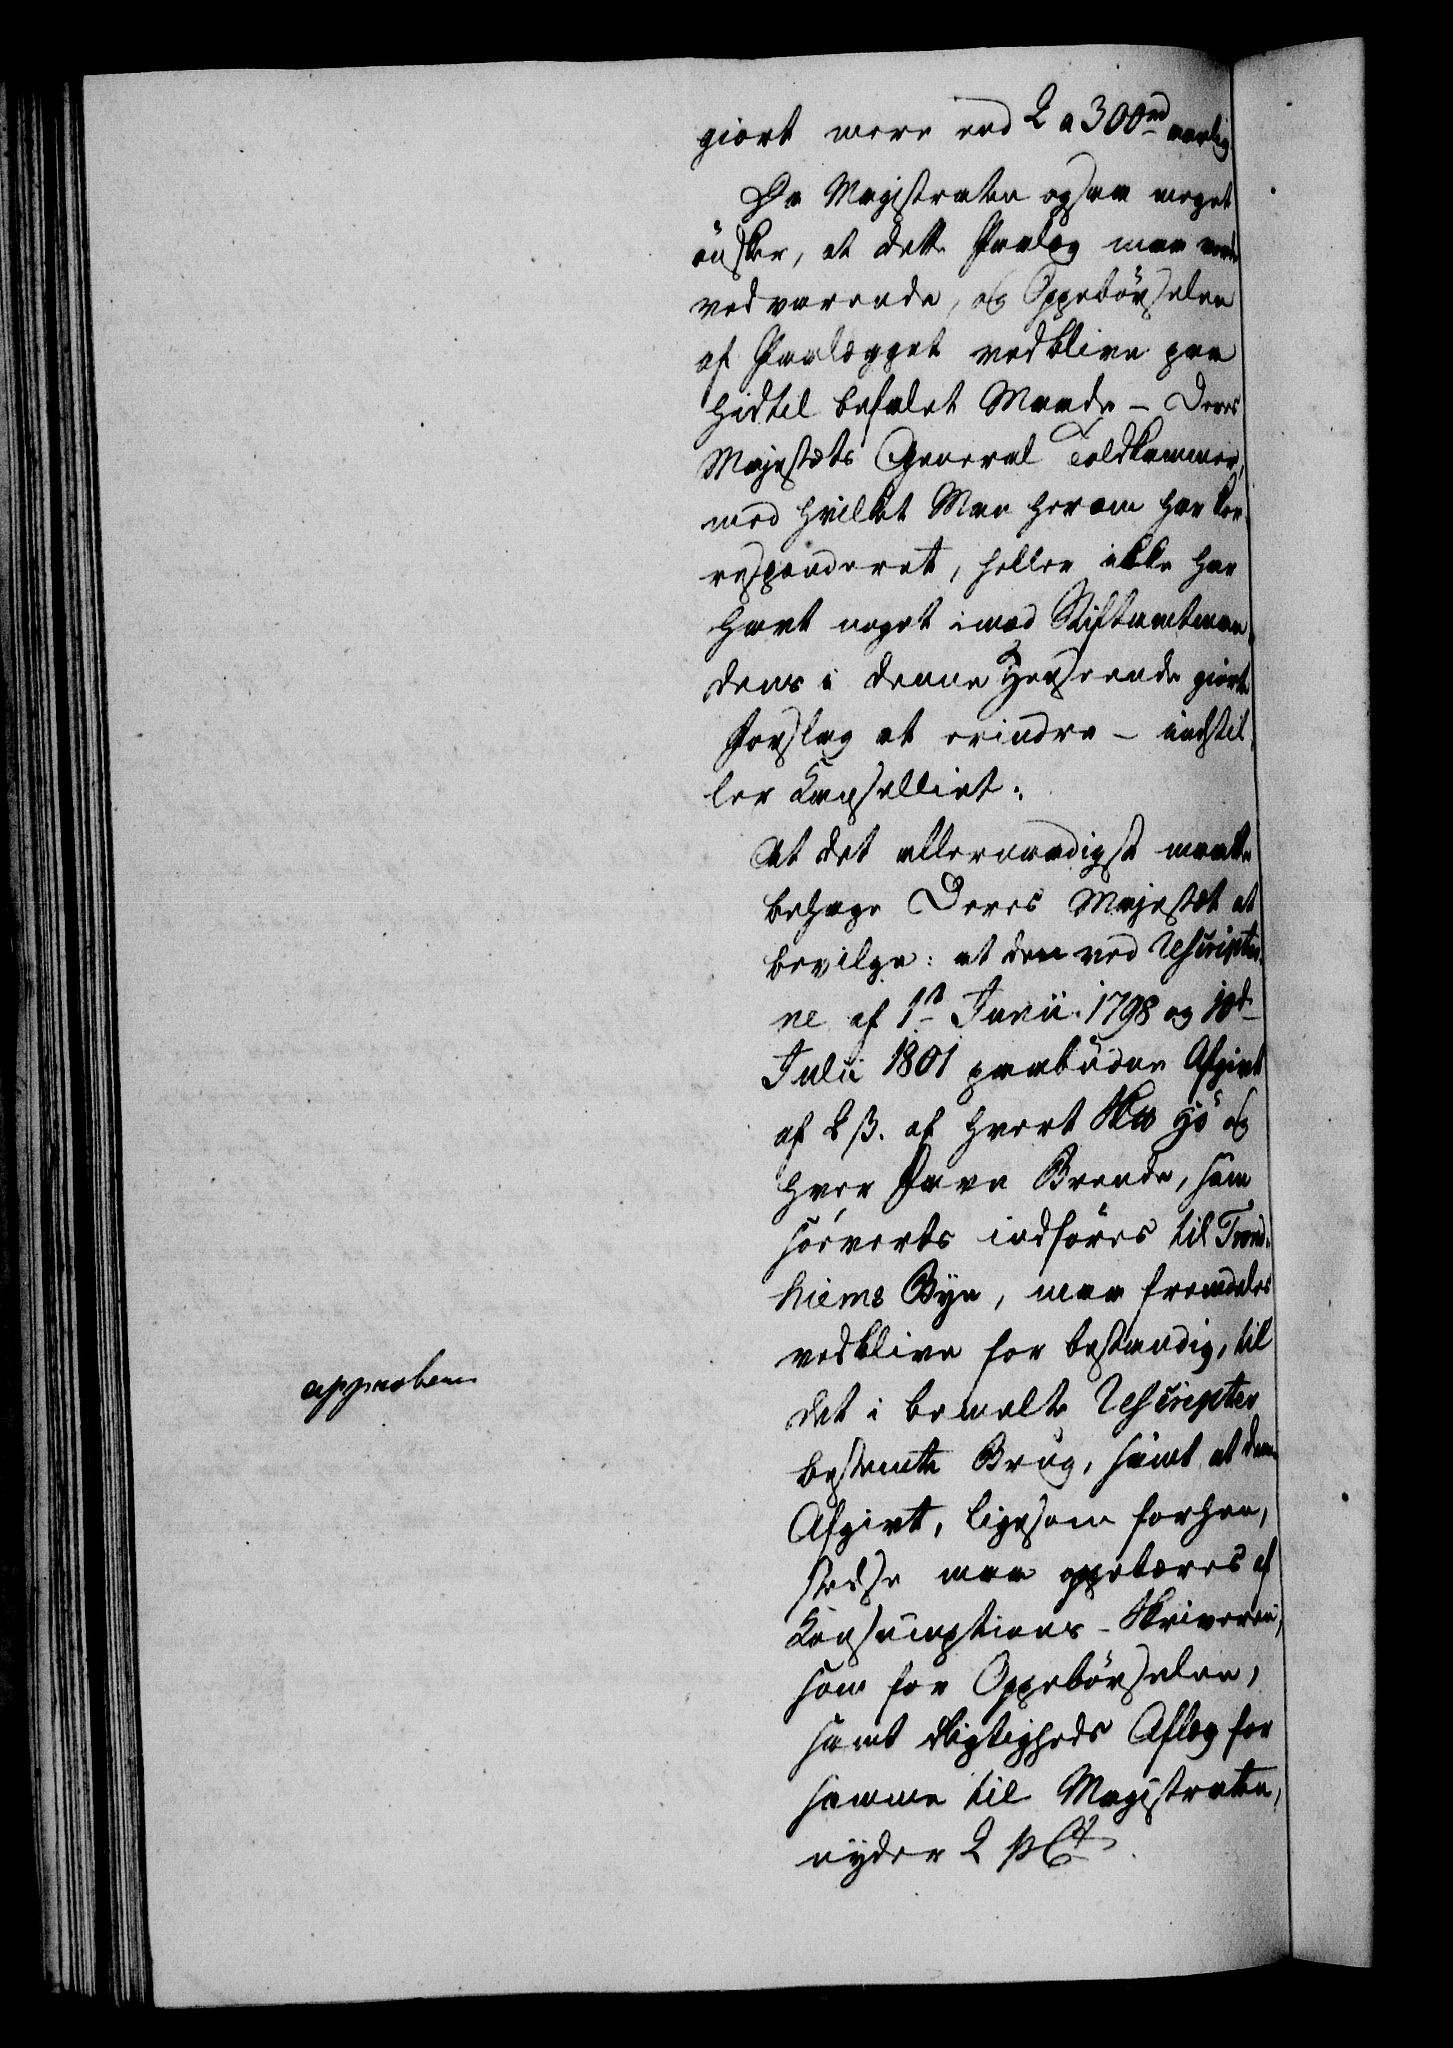 giort mere end 2 a 300 rd aarlig
Da Magistraten ogsaa meget
ønsker, at dette Paalæg maa vorde
vedvarende, og Oppebørselen
af Paalægget vedblive paa
hidtil befalet Maade – Deres
Majestæts General Toldkammer,
med hvilket Man herom har kor-
responderet, heller ikke har
havt noget imod Stiftamtman-
dens i denne Henseende giorte
Forslag at erindre – indstil-
ler Kanselliet:
At det allernaadigst maatte
behage Deres Majestæt at
bevilge: at den ved Rescripter-
ne af 1st Junii 1798 og 10d
Julii 1801 paabudne Afgivt
af 2 ß. af hvert og
hver Favn Brænde, som
søeverts indføres til Trond-
hiems Bye, maa fremdeles
vedblive for bestandig, til
approberes
det i bemelte Rescripter
bestemte Brug, samt at denne
Afgivt, ligesom forhen,
stedse maa oppebæres af
Konsumptions-Skriveren,
som for Oppebørselen,
samt Rigtigheds Aflæg for
samme til Magistraten,
nyder 2 pCt.